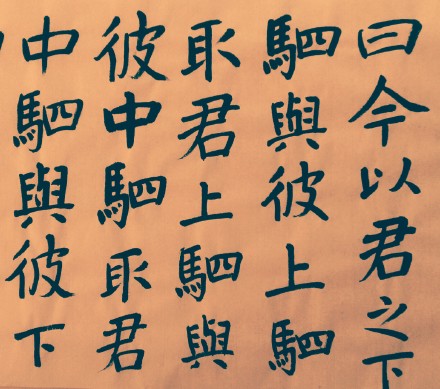 曰今以君之下
駟與彼上駟
取君上駟與
彼中駟取君
中駟與彼下